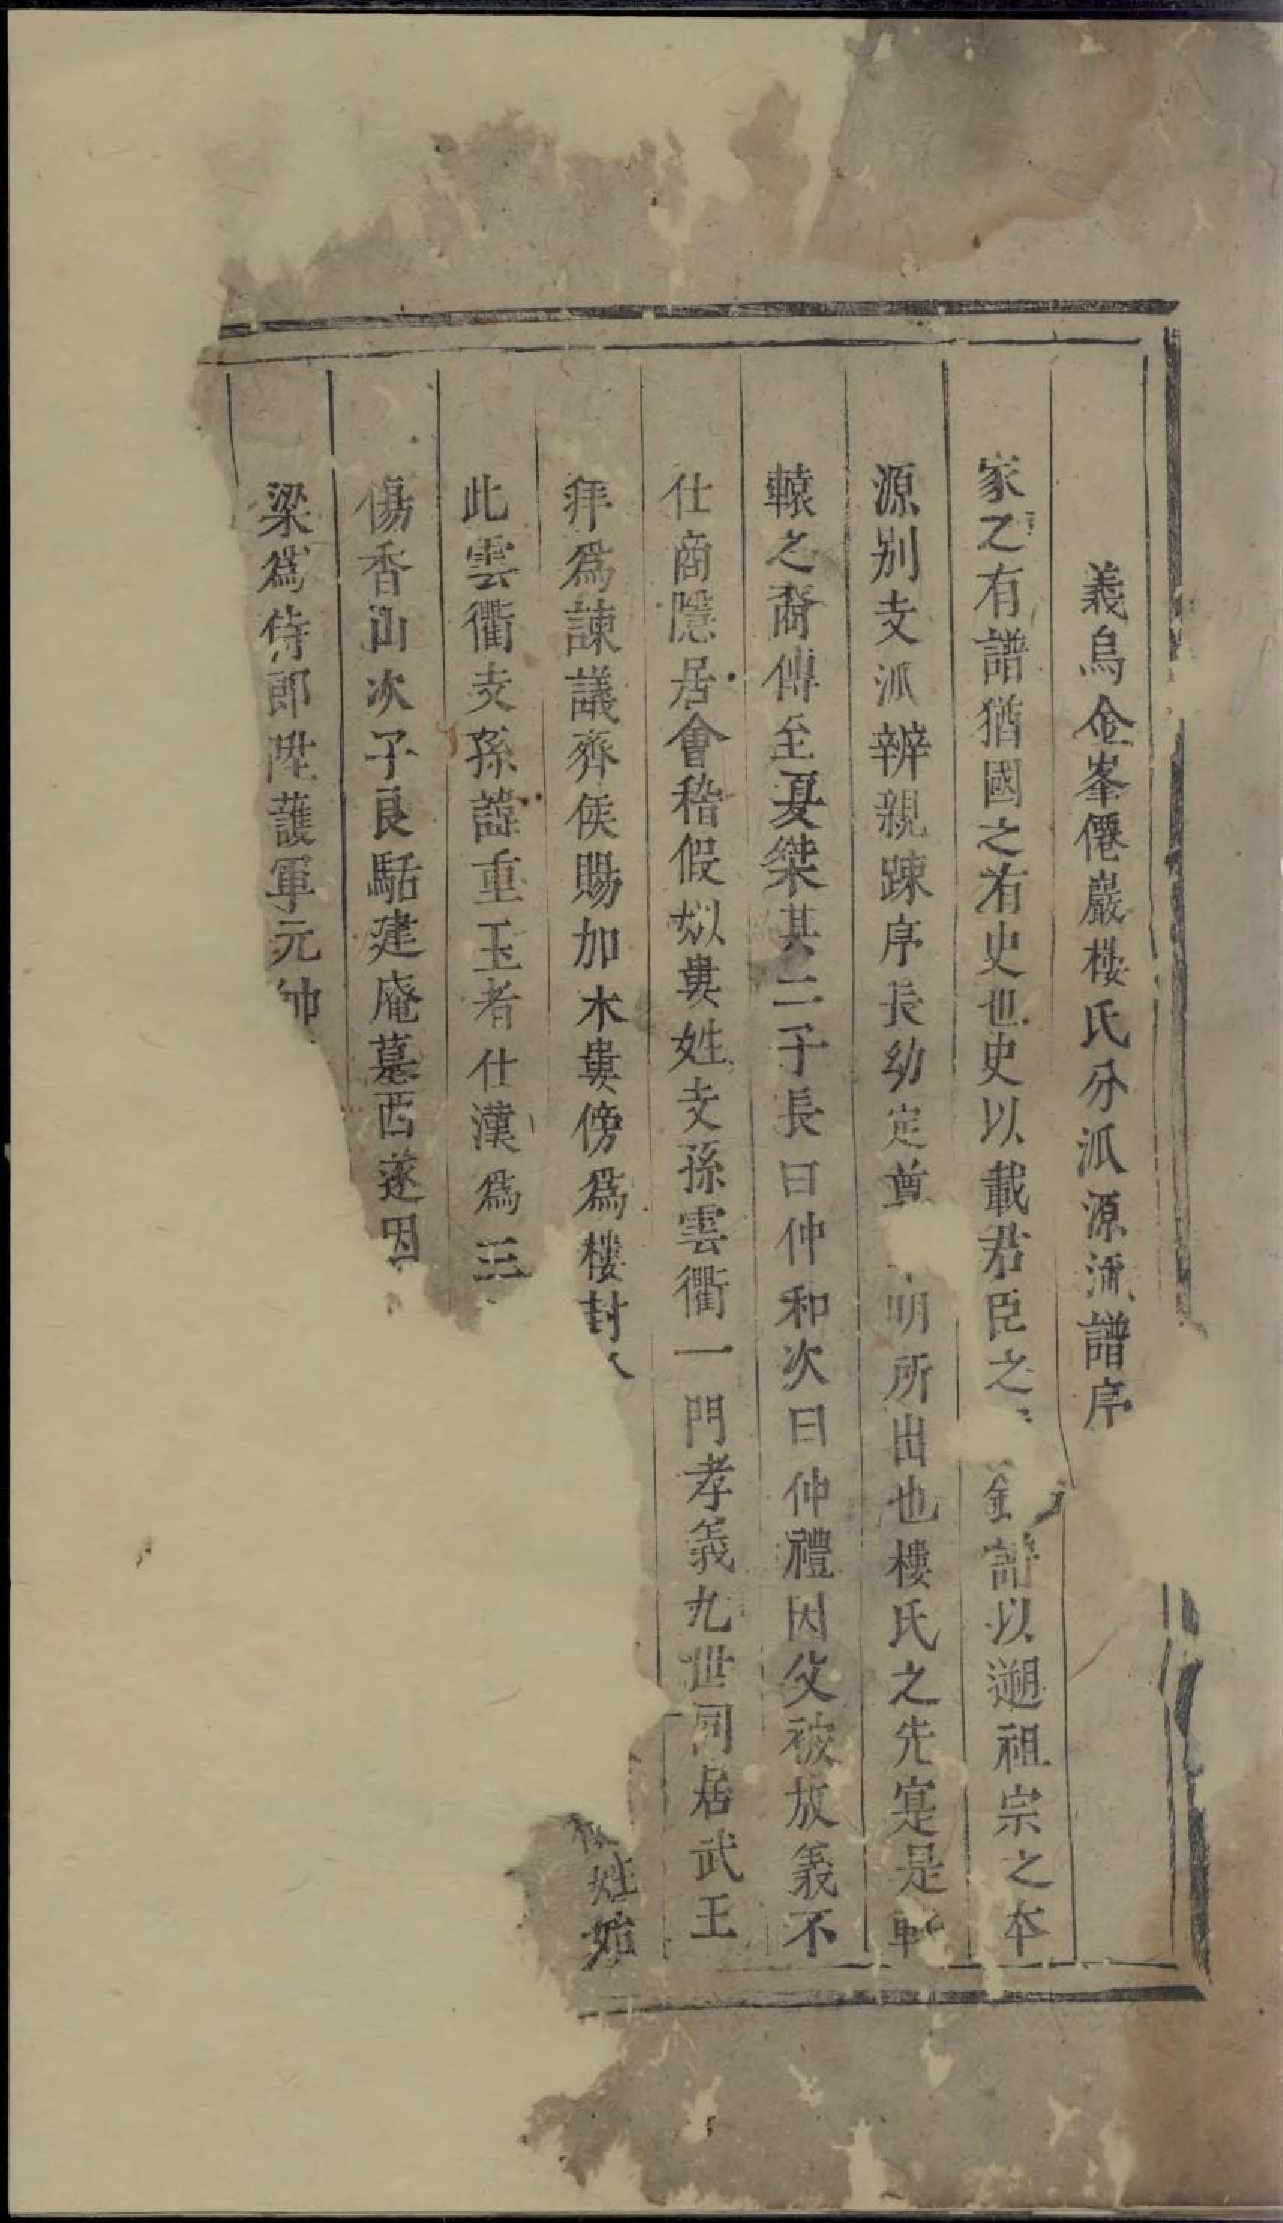 義烏金峯僊巖樓氏分派源流譜序
家之有譜猶國之有史也史以載君臣之 譜以遡祖宗之本
源別支派辨親踈序長幼定尊 明所出也樓氏之先寔是軒
轅之裔傳至夏桀其二子長曰仲和次曰仲禮因父被放義不
仕商隱居會稽假姒婁姓支孫雲衢一門孝義九世同居武王
拜爲諫議齊侯賜加木婁傍爲樓封 姓始
此雲衢支孫諱重玉者仕漢爲三
傷香山次子良駘建庵墓西遂因
梁爲侍郎陞護軍元帥